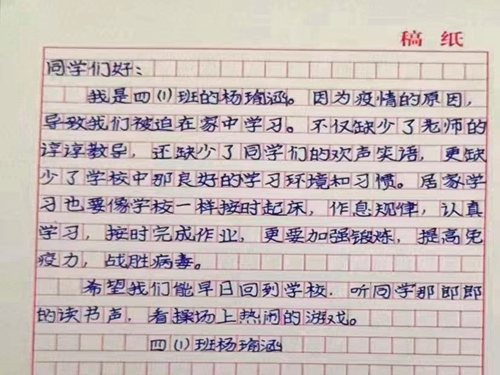 稿纸
同学们好：
我是四(1)班的杨瑜涵。因为疫情的原因，
导致我们被迫在家中学习。不仅缺少了老师的
谆谆教导，还缺少了同学们的欢声笑语，更缺
少了学校中那良好的学习环境和习惯。居家学
习也要像学校一样按时起床，作息规律，认真
学习，按时完成作业，更要加强锻炼，提高免
疫力，战胜病毒。
希望我们能早日回到学校，听同学那郎郎
的读书声，看操场上热闹的游戏。
四(1)班杨瑜涵